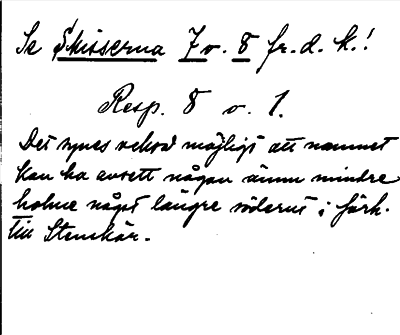 Se Skisserna 7 v. 8 fr. d. k.!
Resp. 8 v. 1.
Det synes också möjligt att namnet
kan ha avsett någon ännu mindre
holme något längre söderut i förh.
till Stenskär.